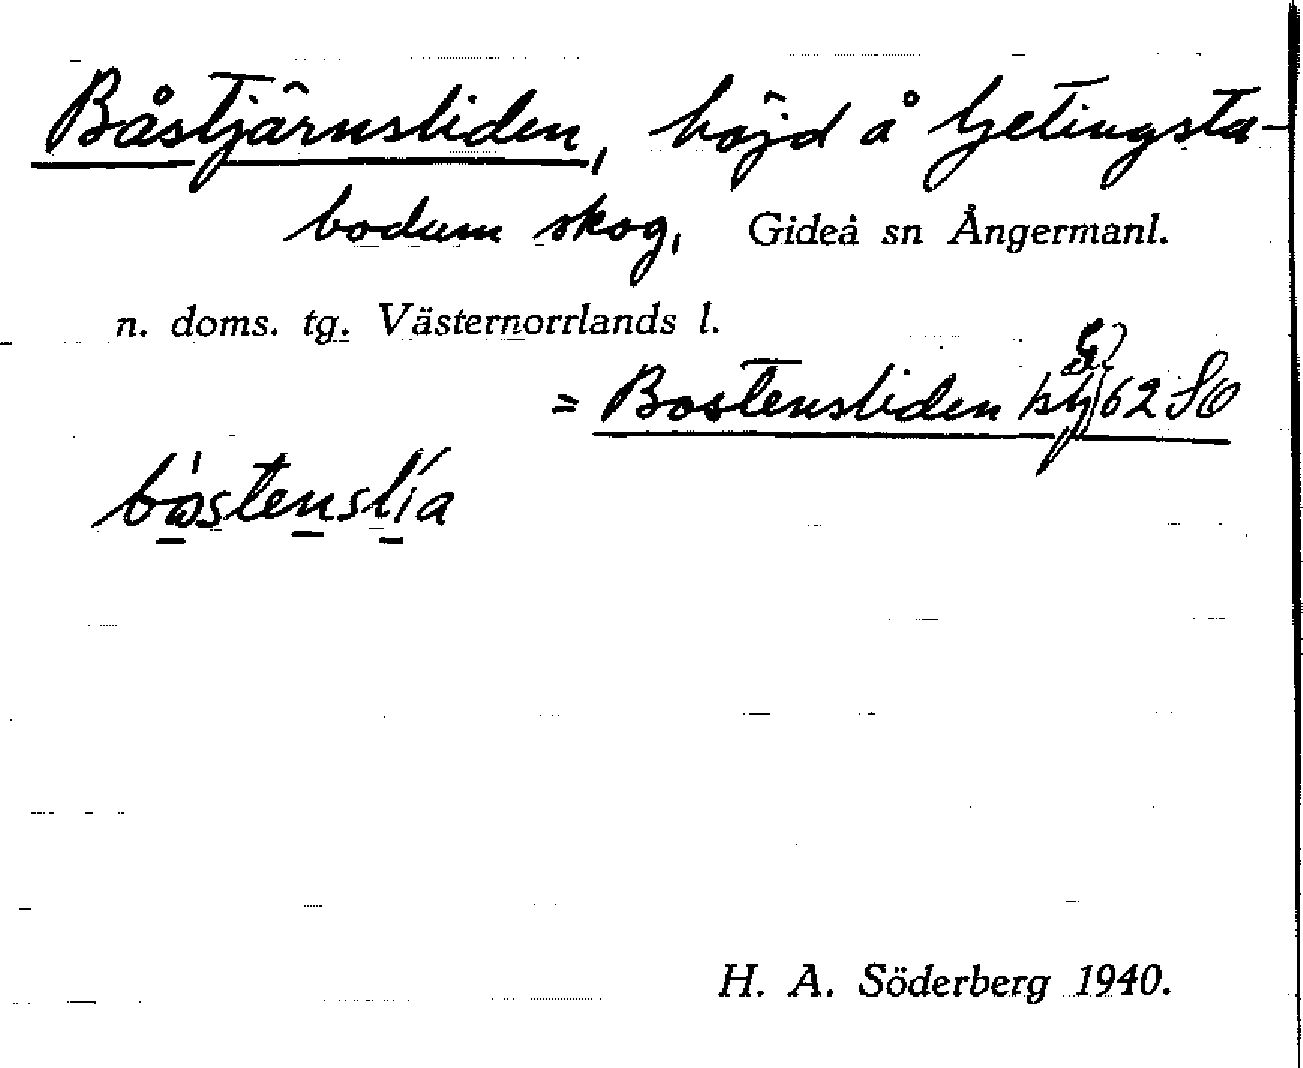 Båstjärnsliden, höjd å Getingsta-
bodum skog, Gideå sn Ångermanl.
n. doms. tg. Västernorrlands l.
= Bostensliden 62 SO
bostenslia
H. A. Söderberg 1940.